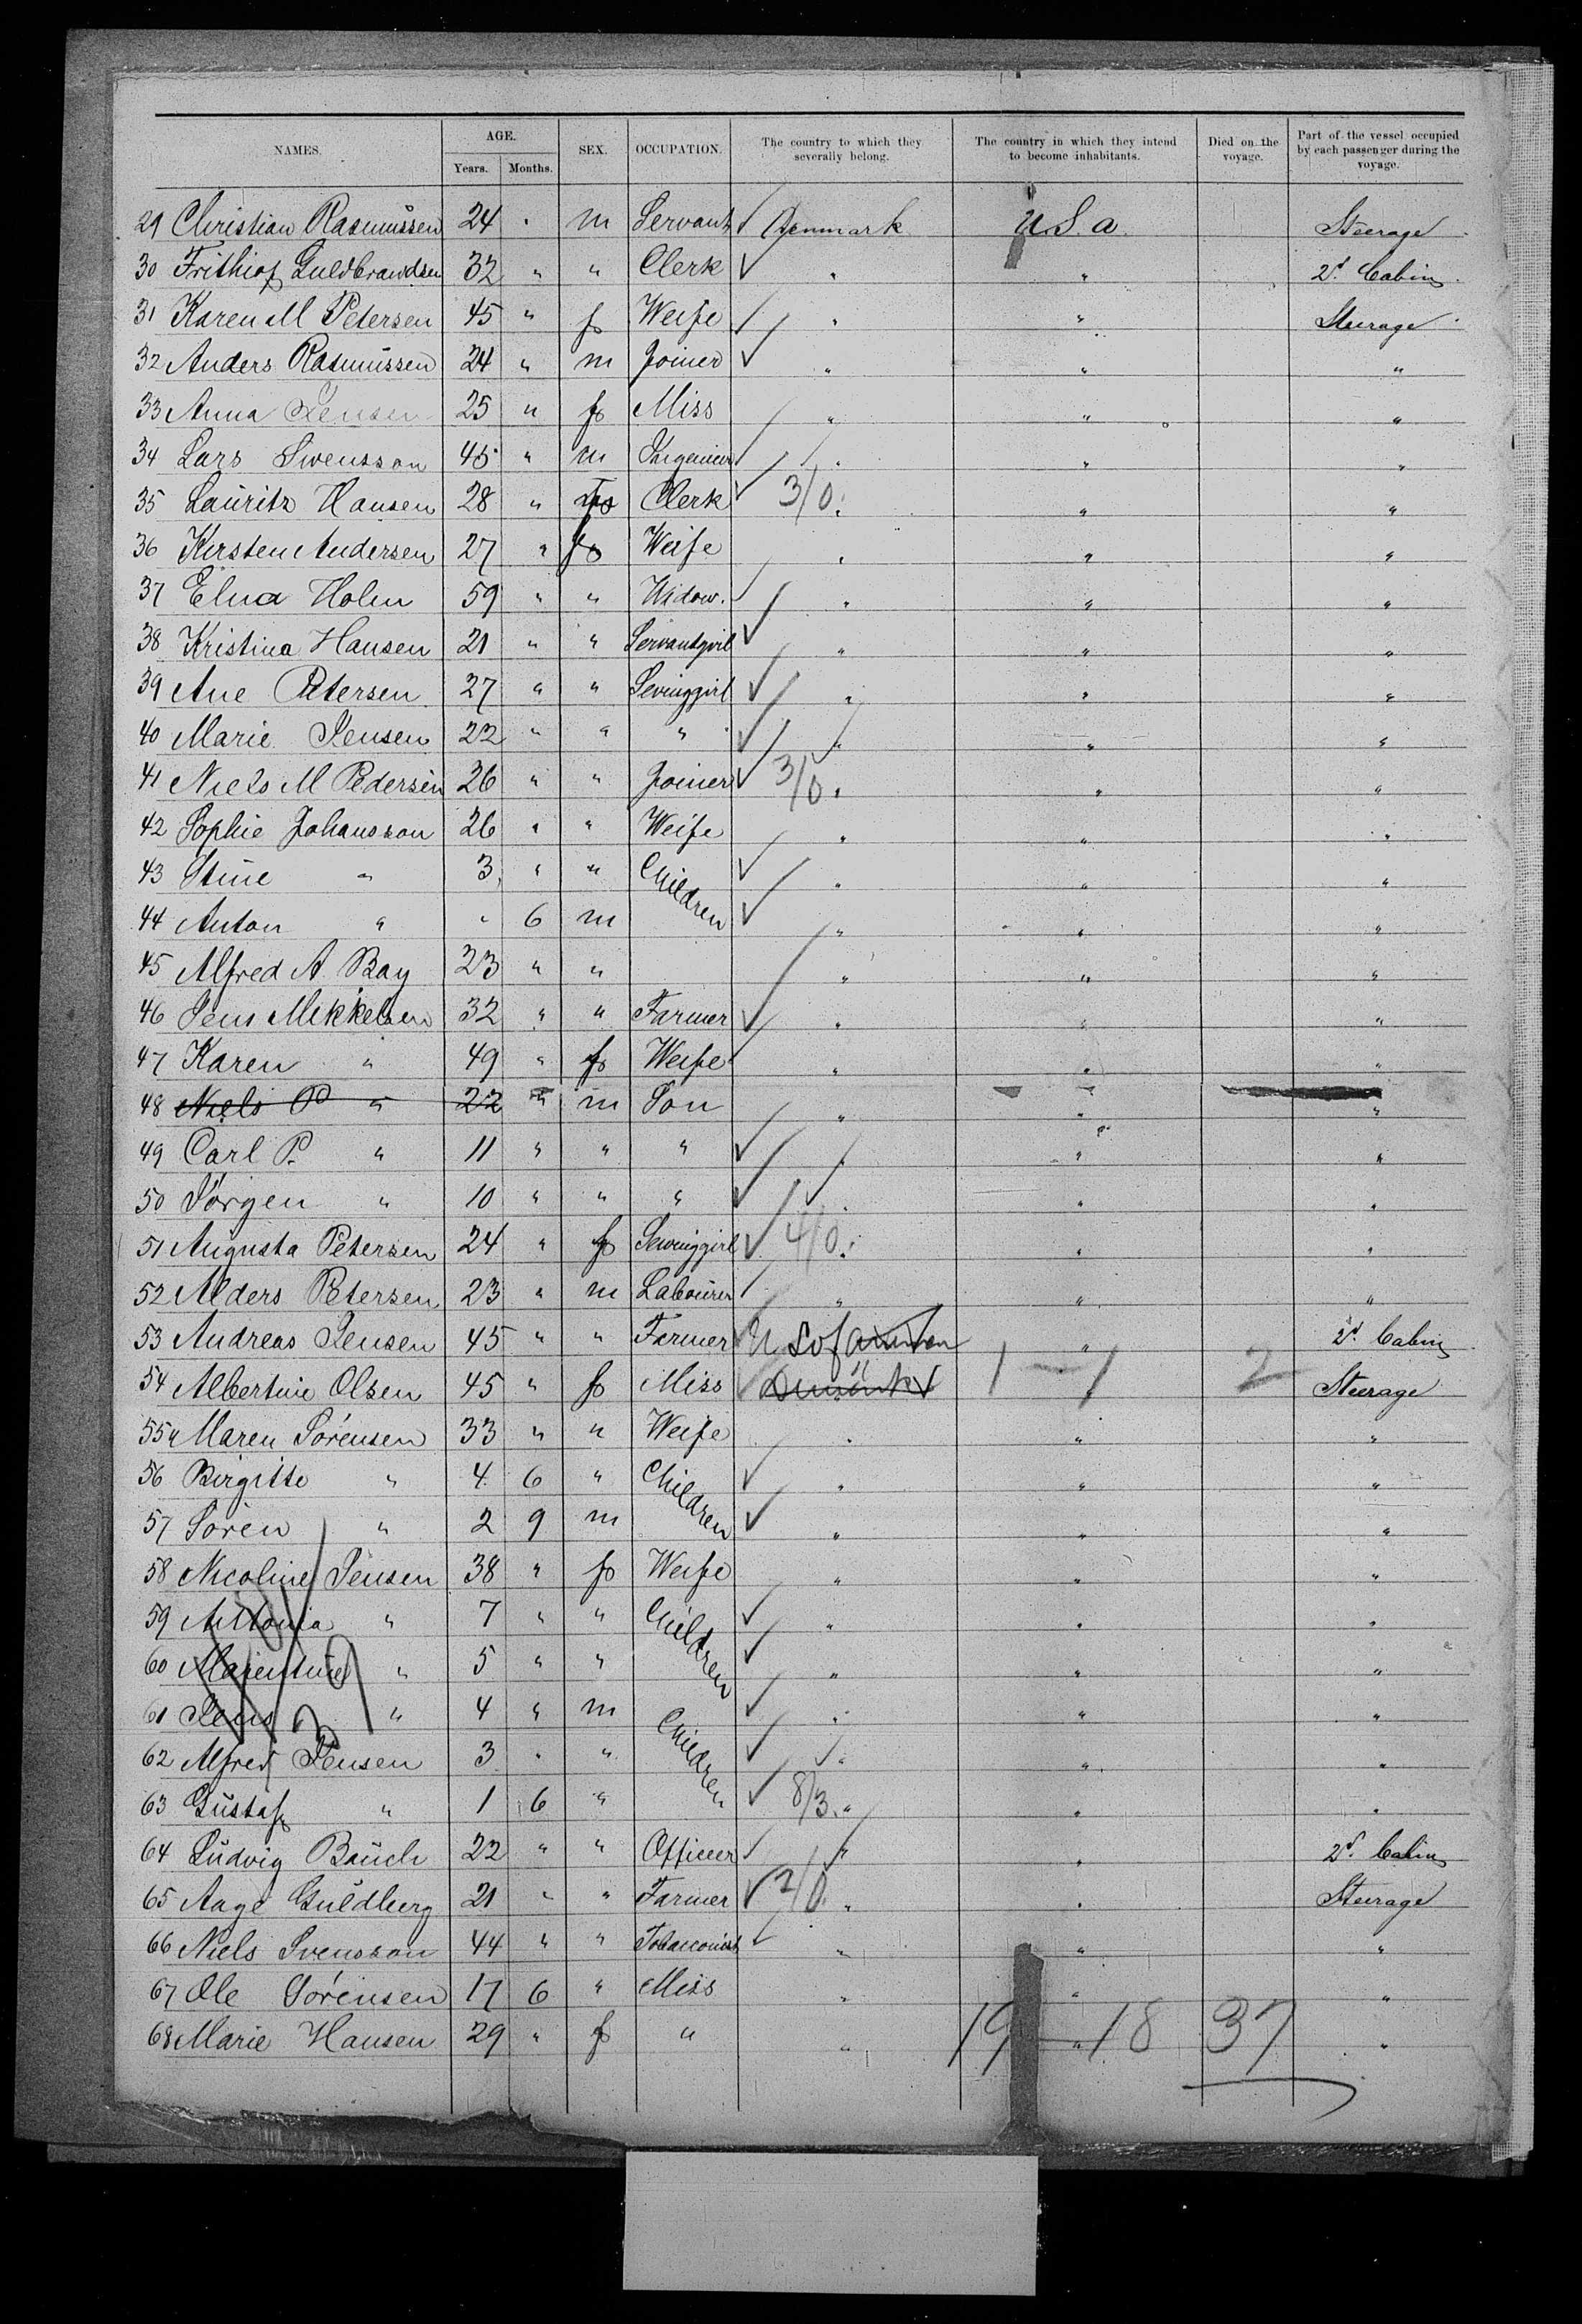 NAMES. AGE. SEX. OCCUPATION. The country to which they severally belong. The country in which they intend to become inhabitants. Died on the voyage. Part of the vessel occupied by each passenger during the voyage.
Years. Months.
29 Christian Rasmussen 24 " m Servant Denmark U.S.a. Steerage
30 Frithiof Guldbrandsen 32 " " Clerk " " 2d. Cabin
31 Karen M Petersen 45 " f Weife " " Steerage
32 Anders Rasmussen 24 " m Joiner " " "
33 Anna Jensen 25 " f Miss " " "
34 Lars Swensson 45 " m " " "
35 Lauritz Hansen 28 " Clerk 3/0 " " "
36 Kirsten Andersen 27 " f Weife " " "
37 Elna Holm 59 " " Widow. " " "
38 Kristina Hansen 21 " " Servantgirl " " "
39 Ane Petersen 27 " " Sevinggirl " " "
40 Marie Jensen 22 " " " " " "
41 Niels M Pedersen 26 " " Joiner 3/0 " " "
42 Sophie Johansson 26 " " Weife " " "
43 Stine " 3 " " Children " " "
44 Anton " " 6 m " " "
45 Alfred A. Bay 23 " " " " "
46 Jens Mikkelsen 32 " " Farmer " " "
47 Karen " 49 " f Weife " " "
48 Niels P " 22 " m Son " " "
49 Carl P. " 11 " " " " " "
50 Jörgen " 10 " " " " " "
51 Augusta Petersen 24 " f Sewinggirl 4/0 " " "
52 Alders Petersen 23 " m Labourer " " "
53 Andreas Jensen 45 " " Farmer U S of " 2d. Cabin
54 Albertine Olsen 45 " f Miss Denmark 1 - 1 2 Steerage
55 Maren Sörensen 33 " " Weife " " "
56 Birgitte " 4 6 " Children " " "
57 Sören " 2 9 m " " "
58 Nicoline Jensen 38 " f Weife " " "
59 Antonia " 7 " " Children " " "
60 " 5 " " " " "
61 Jens " 4 " m Children " " "
62 Alfred Jensen 3 " " " " "
63 Gustaf " 1 6 " 8/3 " " "
64 Ludvig Bauch 22 " " Officer " " 2d. Cabin
65 Aage Guldberg 21 " " Farmer 2/0 " " Steerage
66 Niels Svensson 44 " " Tobacconist " " "
67 Ole Sörensen 17 6 " Miss " " "
68 Marie Hansen 29 " f " " 19 - 18 37 "